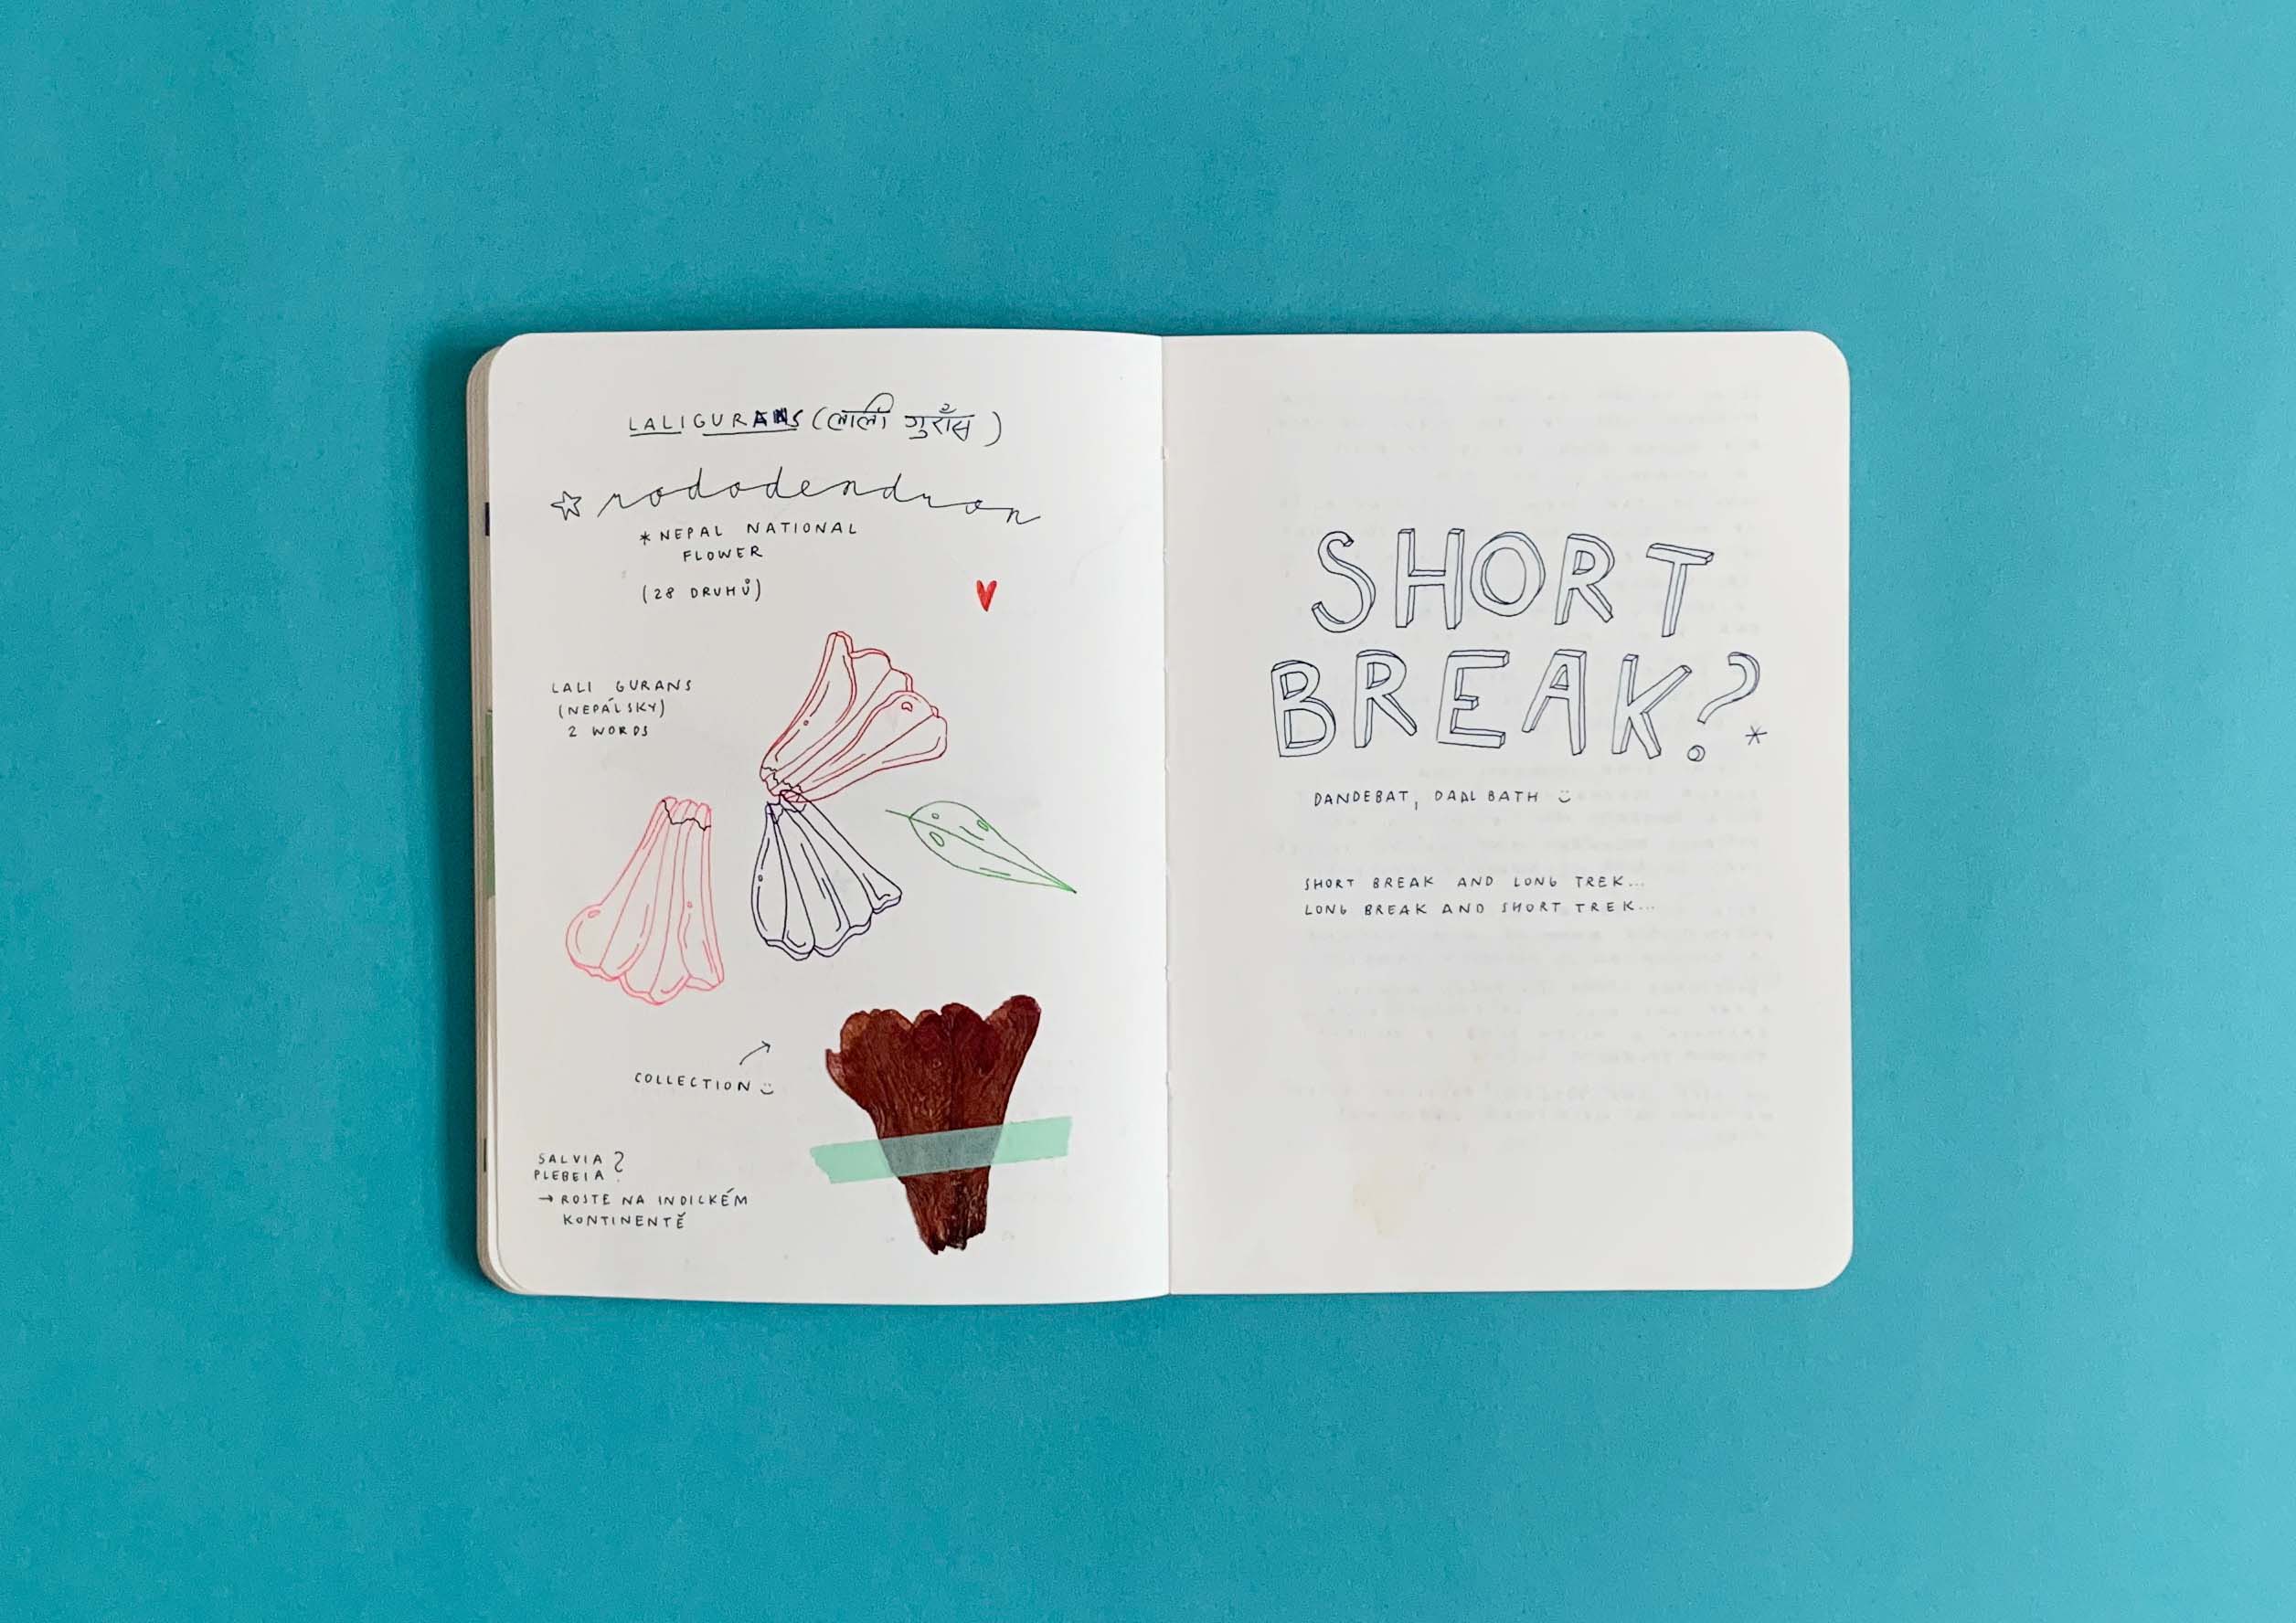 LALIGURANS (लाली गुराँस)
rododendron
*NEPAL NATIONAL
FLOWER
(28 DRUHŮ)
LALI GURANS
(NEPÁLSKY)
2 WORDS
COLLECTION
SALVIA
PLEBEIA?
→ ROSTE NA INDICKÉM
KONTINENTĚ
SHORT
BREAK?*
DANDEBAT, DAAL BATH
SHORT BREAK AND LONG TREK...
LONG BREAK AND SHORT TREK...